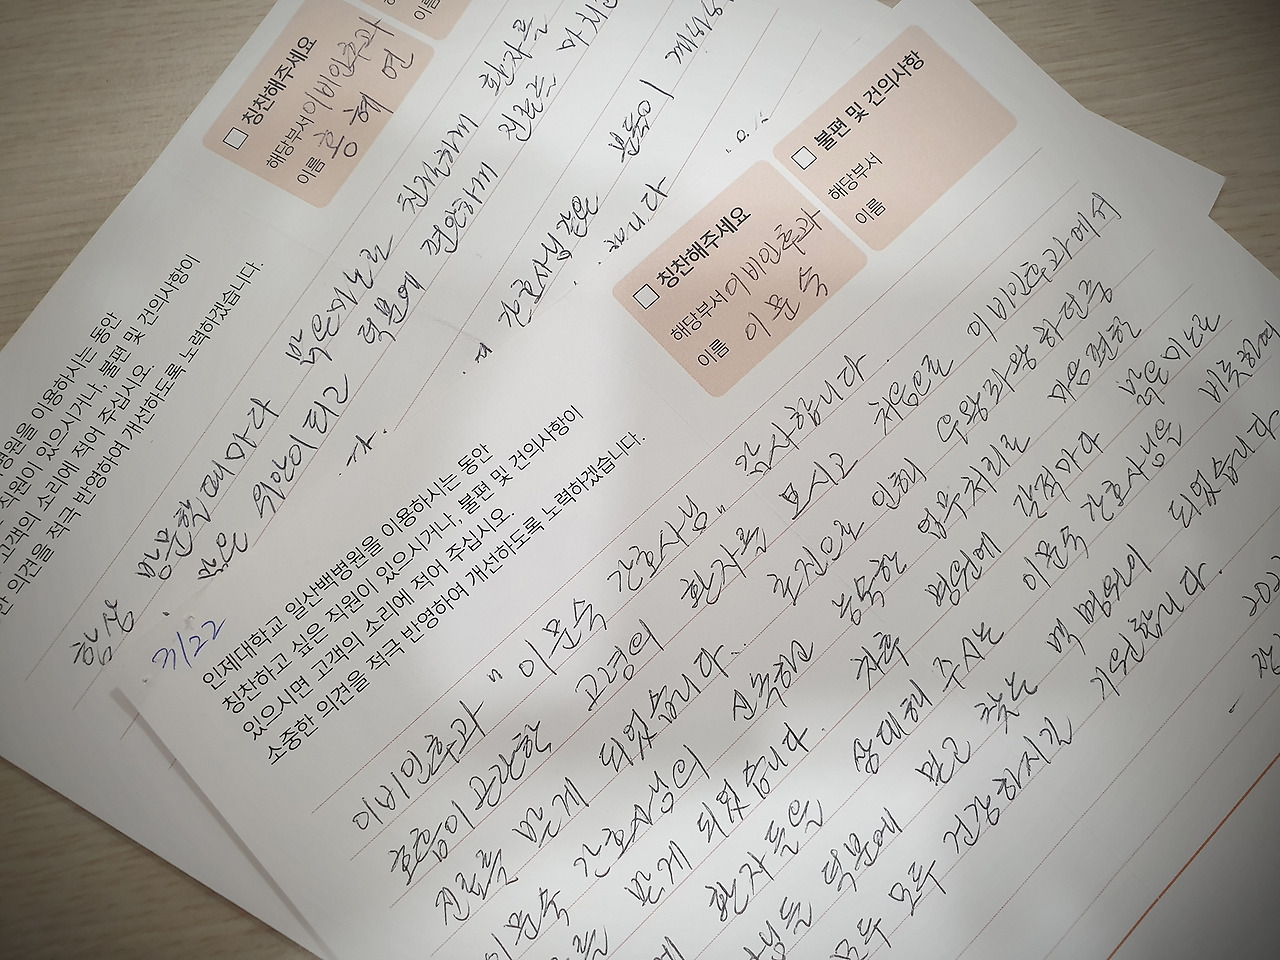 칭찬해주세요
해당부서 이비인후과
이름 홍 혜 연
병원을 이용하시는 동안
직원이 있으시거나, 불편 및 건의사항이
고객의 소리에 적어 주십시오.
한 의견을 적극 반영하여 개선하도록 노력하겠습니다.
항상 방문할 때마다 밝은미소로 친절하게 환자를
많은 위안이 되고 덕분에 편안하게 진료를 마치
간호사님 같은 분들이 계셔서
칭찬해주세요
해당부서 이비인후과
이름 이 문 숙
불편 및 건의사항
해당부서
이름
7/22
인제대학교 일산백병원을 이용하시는 동안
칭찬하고 싶은 직원이 있으시거나, 불편 및 건의사항이
있으시면 고객의 소리에 적어 주십시오.
소중한 의견을 적극 반영하여 개선하도록 노력하겠습니다.
이비인후과 " 이문숙 간호사님 " 감사합니다
호흡이 곤란한 고령의 환자를 모시고 처음으로 이비인후과에서
진료를 받게 되었습니다. 혼잡으로 인해 우왕좌왕 하던중
이문숙 간호사님의 신속하고 능숙한 업무처리로 마음 편한
를 받게 되었습니다. 차후 병원에 갈적마다 밝은미소로
환자들을 상대해 주시는 이문숙 간호사님을 비롯하여
님들 덕분에 믿고 찾는 백병원이 되었습니다
모두 모두 건강하시길 기원합니다.